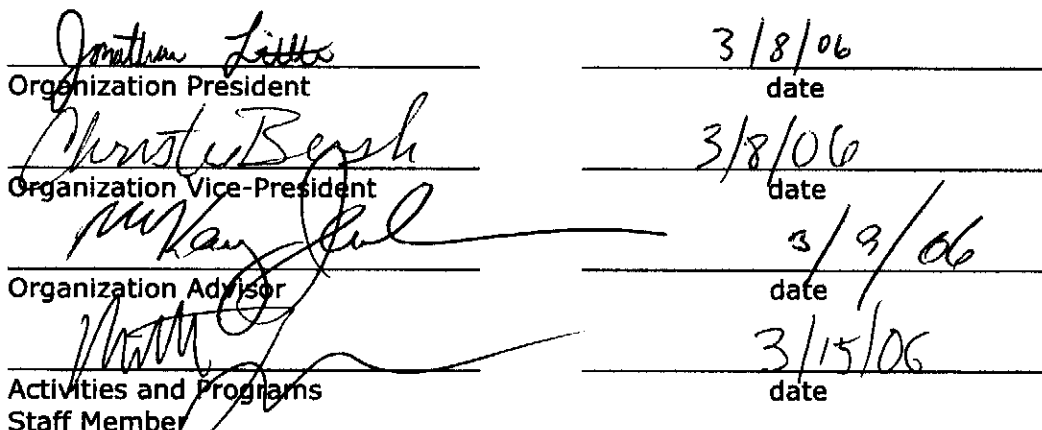 Jonathan Little 3/8/06
Organization President date
Christie Bersh 3/8/06
Organization Vice-President date
McKay 3/9/06
Organization Advisor date
3/15/06
Activities and Programs date
Staff Member